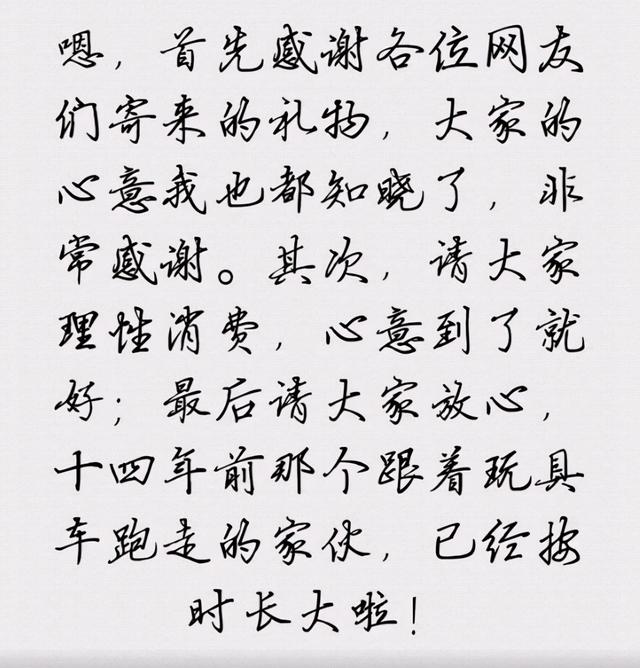 嗯，首先感谢各位网友
们寄来的礼物，大家的
心意我也都知晓了，非
常感谢。其次，请大家
理性消费，心意到了就
好；最后请大家放心，
十四年前那个跟着玩具
车跑走的家伙，已经按
时长大啦！